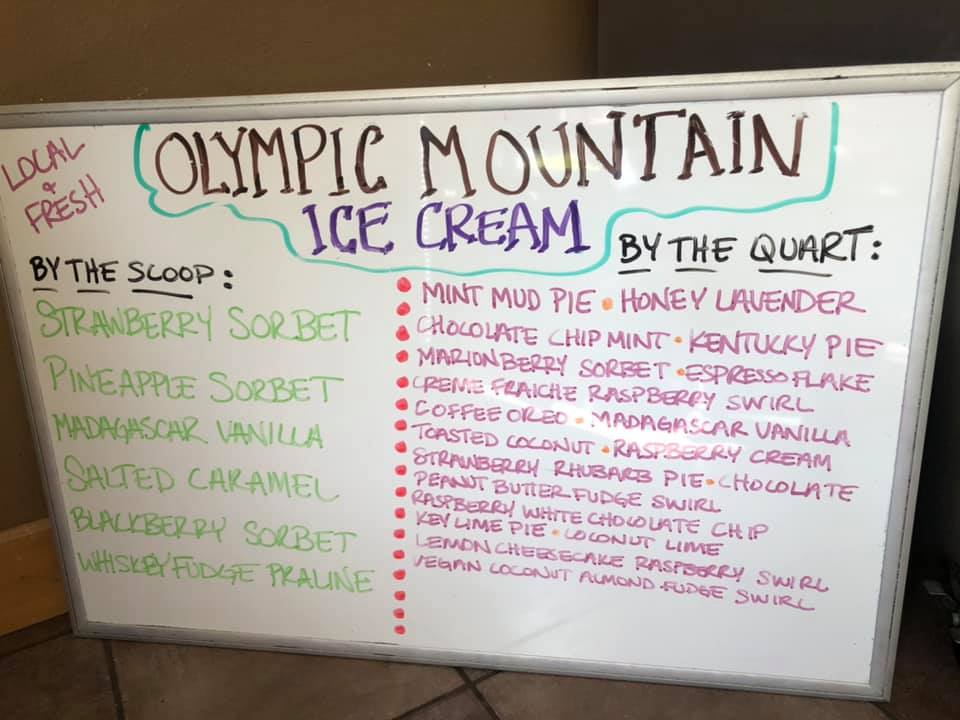 LOCAL
+
FRESH
OLYMPIC MOUNTAIN
ICE CREAM
BY THE SCOOP:
STRAWBERRY SORBET
PINEAPPLE SORBET
MADAGASCAR VANILLA
SALTED CARAMEL
BLACKBERRY SORBET
WHISKEY FUDGE PRALINE
BY THE QUART:
MINT MUD PIE • HONEY LAVENDER
CHOCOLATE CHIP MINT • KENTUCKY PIE
MARIONBERRY SORBET • ESPRESSO FLAKE
CREME FRAICHE RASPBERRY SWIRL
COFFEE OREO • MADAGASCAR VANILLA
TOASTED COCONUT • RASPBERRY CREAM
STRAWBERRY RHUBARB PIE • CHOCOLATE
PEANUT BUTTER FUDGE SWIRL
RASPBERRY WHITE CHOCOLATE CHIP
KEY LIME PIE • COCONUT LIME
LEMON CHEESECAKE RASPBERRY SWIRL
VEGAN COCONUT ALMOND FUDGE SWIRL